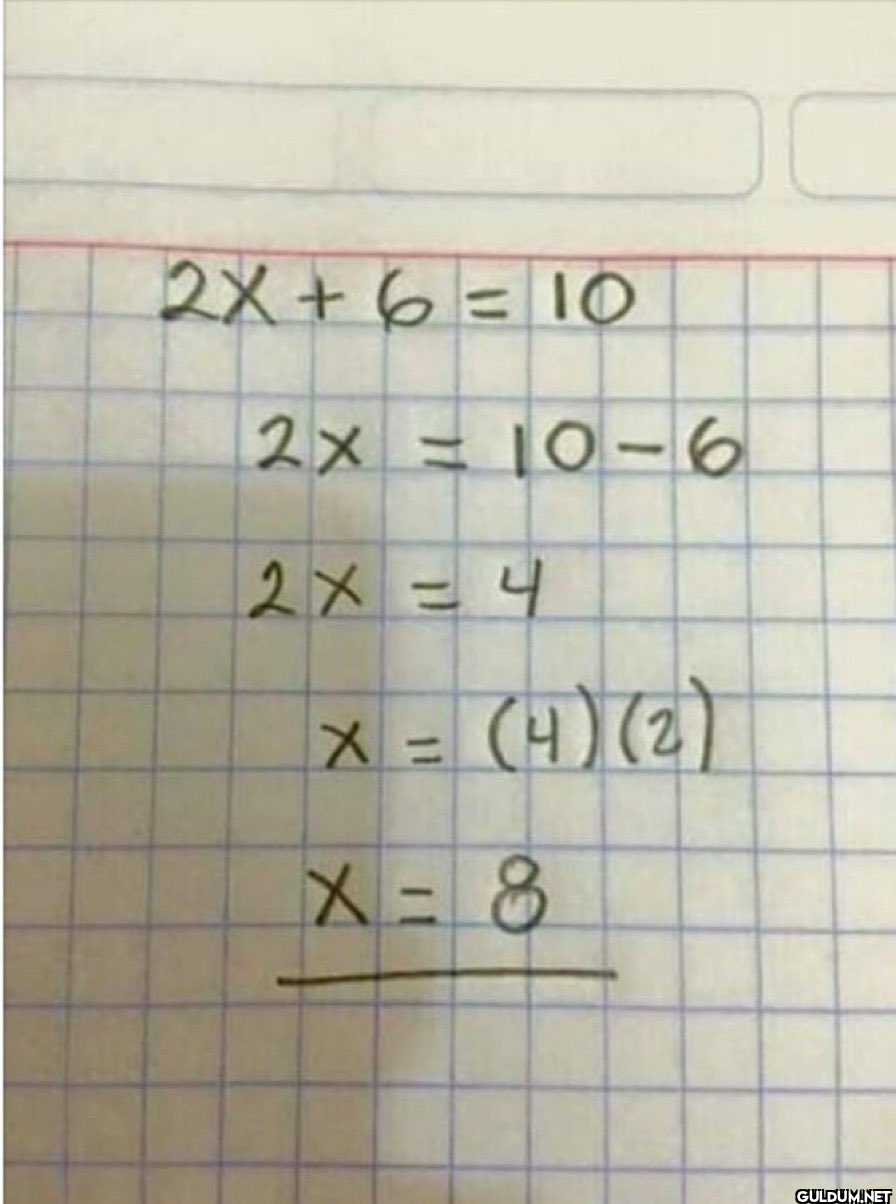 2x + 6 = 10
2x = 10 - 6
2x = 4
x = (4)(2)
x = 8
GULDUM.NET